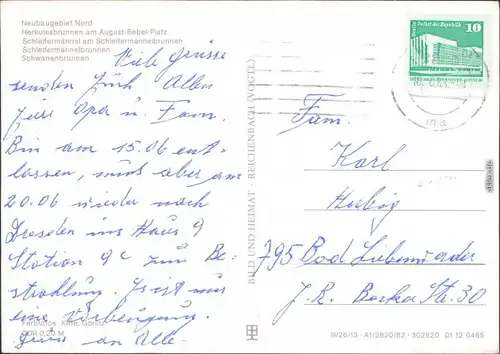 Neubaugebiet Nord
Herkulesbrunnen am August-Bebel-Platz
Schleifermännel am Schleifermännelbrunnen
Schleifermännelbrunnen
Schwanenbrunnen
Viele Grüsse
senden Euch Allen
Eure Opa u. Fam.
Bin am 15.06 ent-
lassen, muß aber am
20.06 wieder nach
Dresden ins Haus 9
Station 9c zum Be-
strahlung. Es ist nur
eine Vorbeugung.
Gruss an Alle.
Farbfotos: Görlitz
DDR 0,20 M
BILD UND HEIMAT · REICHENBACH (VOGTL)
10
Fam.
Karl
Herbig
795 Bad Liebenwerda
J. R. Becher Str. 30
III/26/13 · A1/2620/82 · 302620 01 12 0465